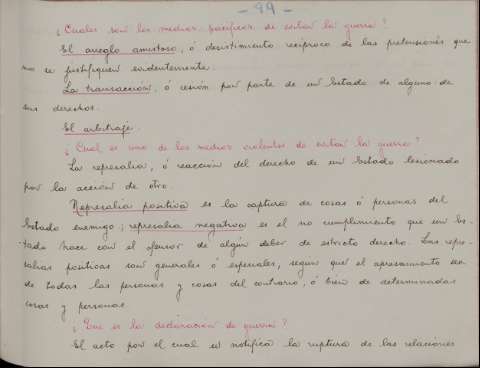 - 99 -
¿Cuales son los medios pacíficos de evitar la guerra?
El arreglo amistoso, ó desistimiento recíproco de las pretensiones que
no se justifiquen evidentemente.
La transacción, ó cesión por parte de un Estado de alguno de
sus derechos.
El arbitraje.
¿Cual es uno de los medios violentos de evitar la guerra?
La represalia, ó reacción del derecho de un Estado lesionado
por la acción de otro.
Represalia positiva es la captura de cosas ó personas del
Estado enemigo; represalia negativa es el no cumplimiento que un Es-
tado hace con el ofensor de algún deber de estricto derecho. Las repre-
salias positivas son generales ó especiales, segun que el apresamiento sea
de todas las personas y cosas del contrario, ó bien de determinadas
cosas y personas.
¿Que es la declaración de guerra?
El acto por el cual se notifica la ruptura de las relaciones